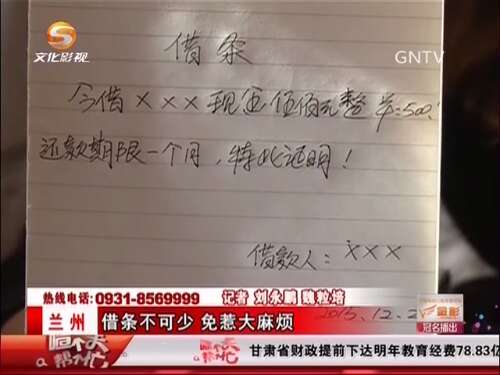 文化影视
GNTV
借条
今借×××现金伍佰元整
还款期限一个月，特此证明！
借款人：×××
2015.12.2
热线电话:0931-8569999
记者 刘永鹏 魏粒培
兰州
借条不可少 免惹大麻烦
冠名播出
帮忙
甘肃省财政提前下达明年教育经费78.83亿